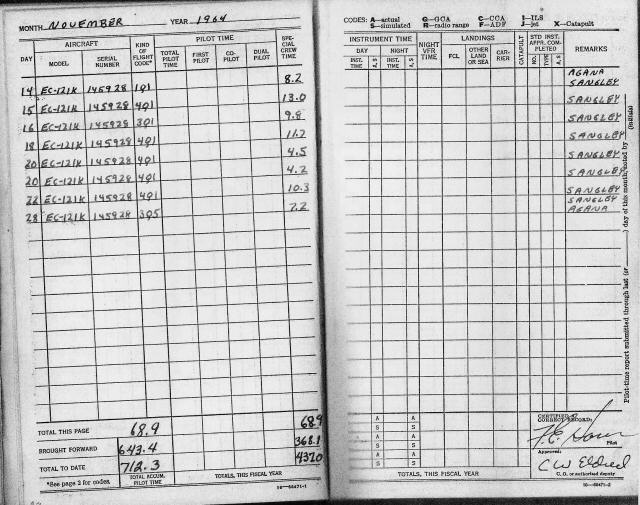 MONTH NOVEMBER YEAR 1964
AIRCRAFT KIND OF FLIGHT CODE* PILOT TIME SPECIAL CREW TIME
DAY MODEL SERIAL NUMBER TOTAL PILOT TIME FIRST PILOT CO-PILOT DUAL PILOT
14 EC-121K 145928 1Q1 8.2
15 EC-121K 145928 4Q1 13.0
16 EC-121K 145928 3Q1 9.8
18 EC-121K 145928 4Q1 11.7
20 EC-121K 145928 4Q1 4.5
20 EC-121K 145928 4Q1 4.2
22 EC-121K 145928 4Q1 10.3
28 EC-121K 145928 3Q5 7.2
TOTAL THIS PAGE 68.9 68.9
BROUGHT FORWARD 643.4 368.1
TOTAL TO DATE 712.3 437.0
*See page 2 for codes. TOTAL ACCUM. PILOT TIME TOTALS, THIS FISCAL YEAR
16—66471-1
CODES: A—actual G—GCA C—CCA I—ILS
S—simulated R—radio range F—ADF J—jet X—Catapult
INSTRUMENT TIME NIGHT VFR TIME LANDINGS CATAPULT STD INST. APPR. COMPLETED REMARKS
DAY NIGHT FCL OTHER LAND OR SEA CARRIER NO. TYPE A, S
INST. TIME A, S INST. TIME A, S
AGANA
SANGLEY
SANGLEY
SANGLEY
SANGLEY
SANGLEY
SANGLEY
SANGLEY
SANGLEY
AGANA
A A
S S
A A
S S
A A
S S
TOTALS, THIS FISCAL YEAR
CERTIFIED A CORRECT RECORD:
Pilot
Approved:
CW Eldred
C.O. or authorized deputy
16—66471-2
Pilot-time report submitted through last (or ) day of this month, noted by (Initials)